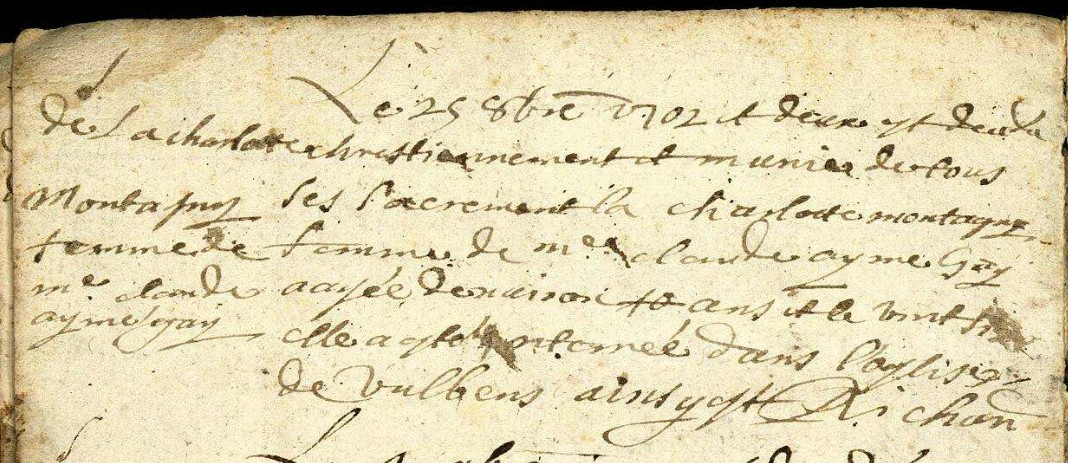 de La charlotte
Montagny
femme de
me claude
aymé gay
Le 25 8bre 1702 et deux est decedée
chrestiennement et munie de tous
ses sacrement la charlotte montagny
femme de me claude ayme Gay
aagée denviron ans et le vint
elle a esté enterrée dans l'eglise
de vulbens ainsy est Richan